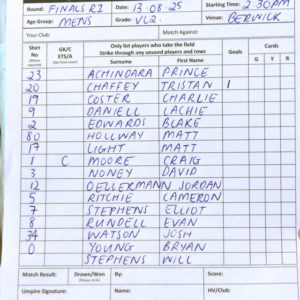 Round: FINALS R1 Date: 13.08.25 Starting Time: 2.30PM
Age Group: MENS Grade: VL2. Venue: BERWICK
Your Club: Match Against:
Shirt No GK/C ETS/A Only list players who take the field Strike through any unused players and rows Goals Cards
Surname First Name G Y R
23 ACHINDARA PRINCE
20 CHAFFEY TRISTAN 1
19 COSTER CHARLIE
9 DANIELL LACHIE
2 EDWARDS BLAKE
80 HOLLWAY MATT
17 LIGHT MATT
1 C MOORE CRAIG
3 NONEY DAVID
12 OELLERMANN JORDAN
5 RITCHIE CAMERON
7 STEPHENS ELLIOT
8 RUNDELL EVAN
34 WATSON JOSH
0 YOUNG BRYAN
STEPHENS WILL
Match Result: Drawn/Won By: Score:
Umpire Signature: Name: HV/Club: